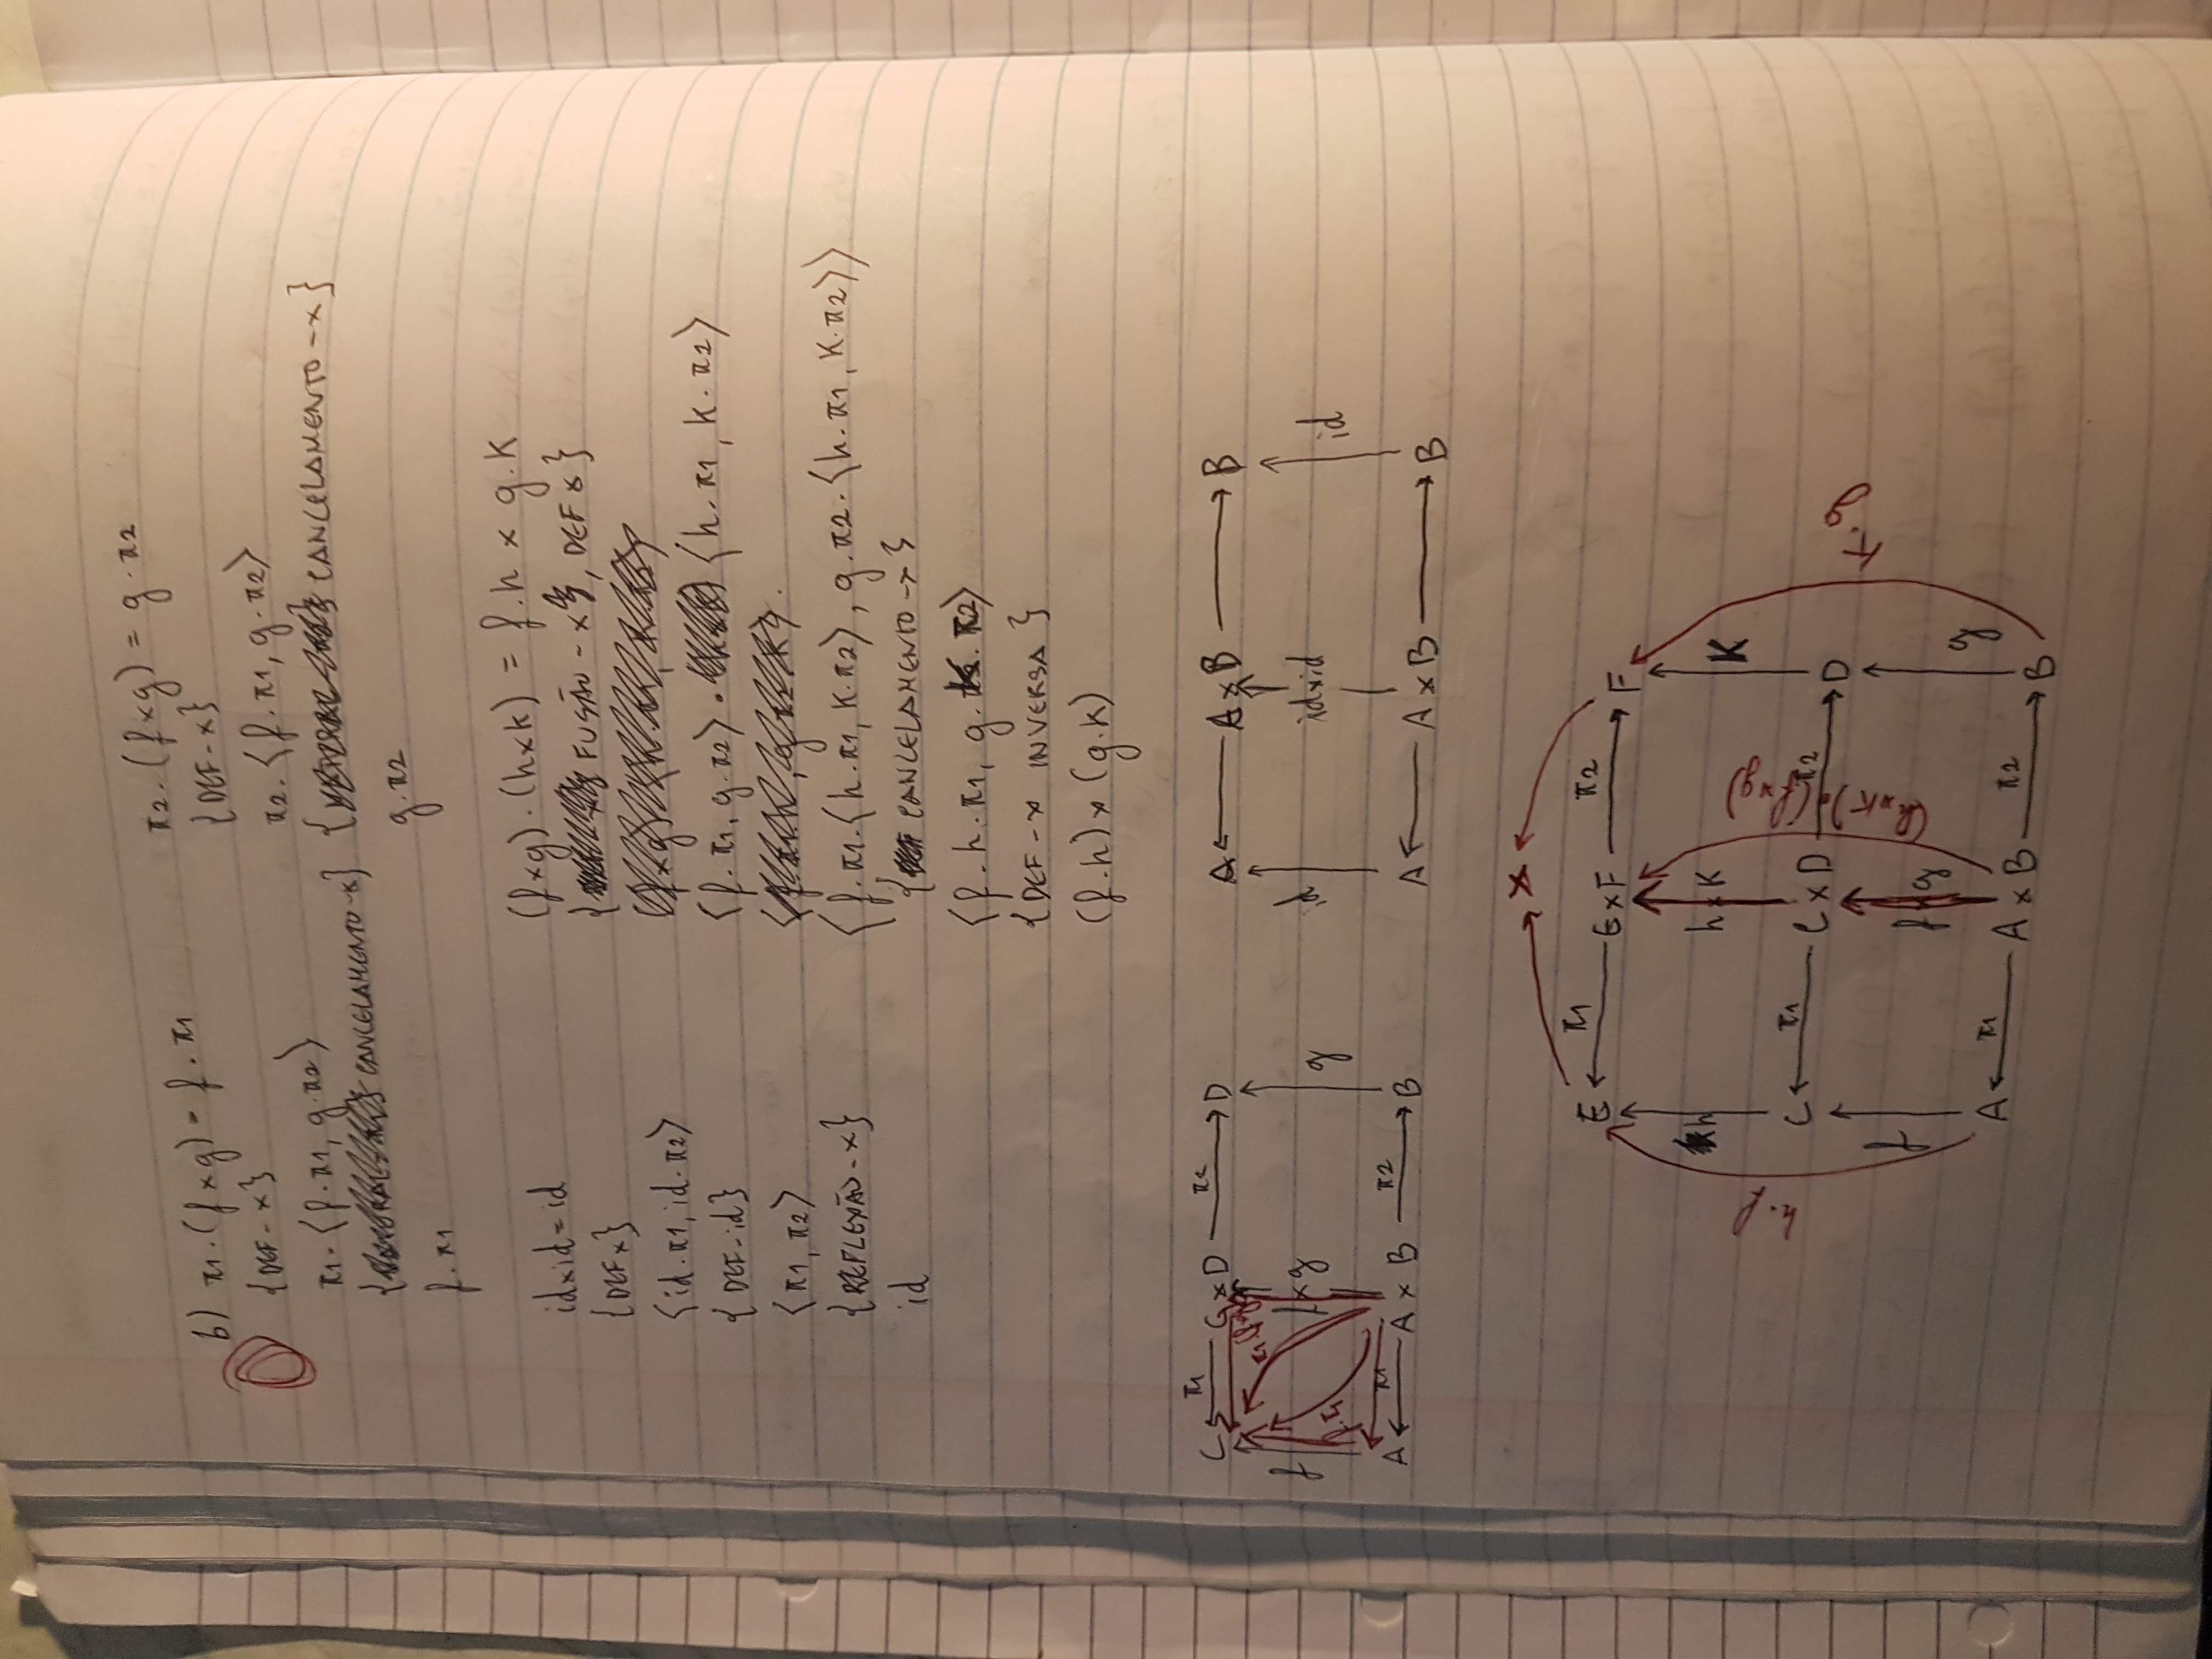 b) π1.(f×g) = f.π1
{DEF-×}
π1.⟨f.π1, g.π2⟩
{CANCELAMENTO-×}
f.π1
π2.(f×g) = g.π2
{DEF-×}
π2.⟨f.π1, g.π2⟩
{CANCELAMENTO-×}
g.π2
id×id=id
{DEF×}
⟨id.π1, id.π2⟩
{DEF-id}
⟨π1, π2⟩
{REFLEXÃO-×}
id
(f×g).(h×k) = f.h × g.k
{FUSÃO-×, DEF×}
⟨f.π1, g.π2⟩.⟨h.π1, k.π2⟩
⟨f.π1.⟨h.π1, k.π2⟩, g.π2.⟨h.π1, k.π2⟩⟩
{CANCELAMENTO-×}
⟨f.h.π1, g.k.π2⟩
{DEF-× INVERSA}
(f.h)×(g.k)
π1 π2
C C×D D
f f.π1 f×g g
π1 π2
A A×B B
A A×B B
id id×id id
A A×B B
×
π1 π2
E E×F F
h h×k k
h.f (h×k).(f×g) k.g
π1 π2
C C×D D
f f×g g
π1 π2
A A×B B